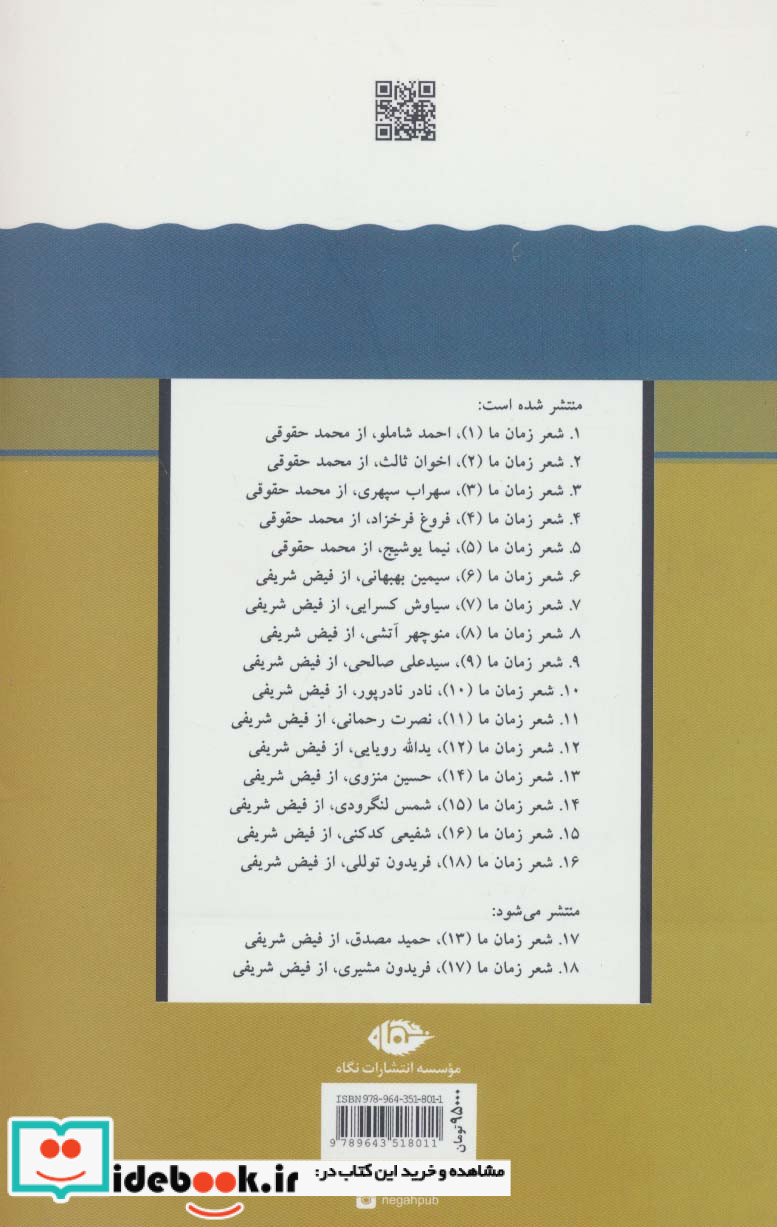 منتشر شده است:
۱. شعر زمان ما (۱)، احمد شاملو، از محمد حقوقی
۲. شعر زمان ما (۲)، اخوان ثالث، از محمد حقوقی
۳. شعر زمان ما (۳)، سهراب سپهری، از محمد حقوقی
۴. شعر زمان ما (۴)، فروغ فرخزاد، از محمد حقوقی
۵. شعر زمان ما (۵)، نیما یوشیج، از محمد حقوقی
۶. شعر زمان ما (۶)، سیمین بهبهانی، از فیض شریفی
۷. شعر زمان ما (۷)، سیاوش کسرایی، از فیض شریفی
۸. شعر زمان ما (۸)، منوچهر آتشی، از فیض شریفی
۹. شعر زمان ما (۹)، سیدعلی صالحی، از فیض شریفی
۱۰. شعر زمان ما (۱۰)، نادر نادرپور، از فیض شریفی
۱۱. شعر زمان ما (۱۱)، نصرت رحمانی، از فیض شریفی
۱۲. شعر زمان ما (۱۲)، یدالله رویایی، از فیض شریفی
۱۳. شعر زمان ما (۱۴)، حسین منزوی، از فیض شریفی
۱۴. شعر زمان ما (۱۵)، شمس لنگرودی، از فیض شریفی
۱۵. شعر زمان ما (۱۶)، شفیعی کدکنی، از فیض شریفی
۱۶. شعر زمان ما (۱۸)، فریدون توللی، از فیض شریفی
منتشر می‌شود:
۱۷. شعر زمان ما (۱۳)، حمید مصدق، از فیض شریفی
۱۸. شعر زمان ما (۱۷)، فریدون مشیری، از فیض شریفی
نگاه
مؤسسه انتشارات نگاه
ISBN 978-964-351-801-1
9 789643 518011
۹۵۰۰۰ تومان
مشاهده و خرید این کتاب در:
idebook.ir
negahpub